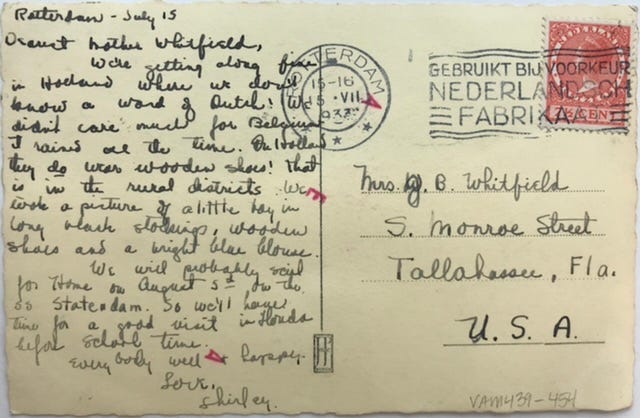 Rotterdam - July 15
Dearest Mother Whitfield,
We're getting along fine
in Holland where we don't
know a word of Dutch! We
didn't care much for Belgium
I rained all the time. In Holland
they do wear wooden shoes! That
is in the rural districts. We
took a picture of a little boy in
long black stockings, wooden
shoes and a bright blue blouse.
We will probably sail
for Home on August 5th on the
SS Statendam. So we'll have
time for a good visit in Florida
before School time.
Everybody well + happy.
Love,
Shirley.
ROTTERDAM
15-16
15 VII
1933
GEBRUIKT BIJ VOORKEUR
NEDERLANDSCH
FABRIKAAT
NEDERLAND
CENT
Mrs. J. B. Whitfield
S. Monroe Street
Tallahassee, Fla.
U. S. A.
VAM439-454